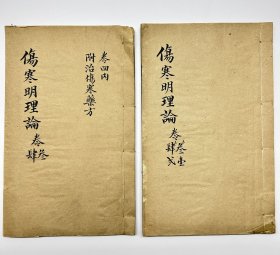 卷四內
附治傷寒藥方
傷寒明理論
卷叁
肆
傷寒明理論
卷叁壹
肆貳